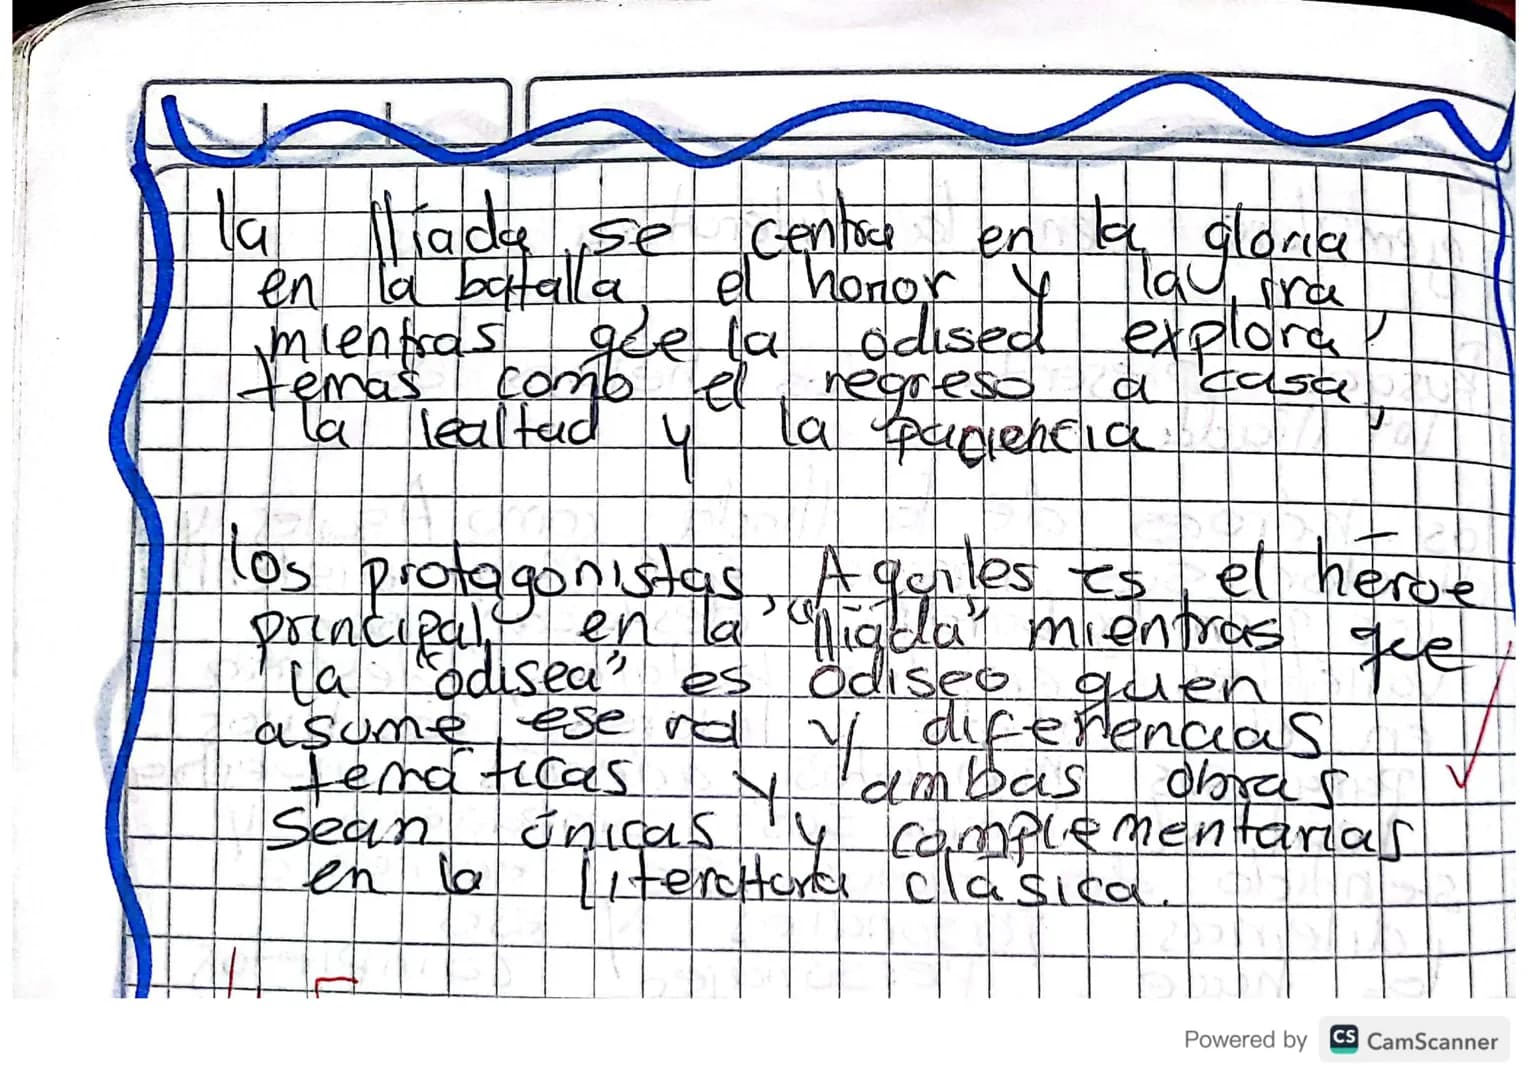 la Ilíada, se centra en la gloria
en la batalla, el honor y la ira,
mientras que la odisea explora
temas como el regreso a casa,
la lealtad y la paciencia
los protagonistas, Aquiles es el héroe
principal en la "Iliada" mientras que
la "odisea" es Odiseo quien
asume ese rol y diferencias
temáticas y ambas obras
sean únicas y complementarias
en la literatura clasica.
Powered by CS CamScanner